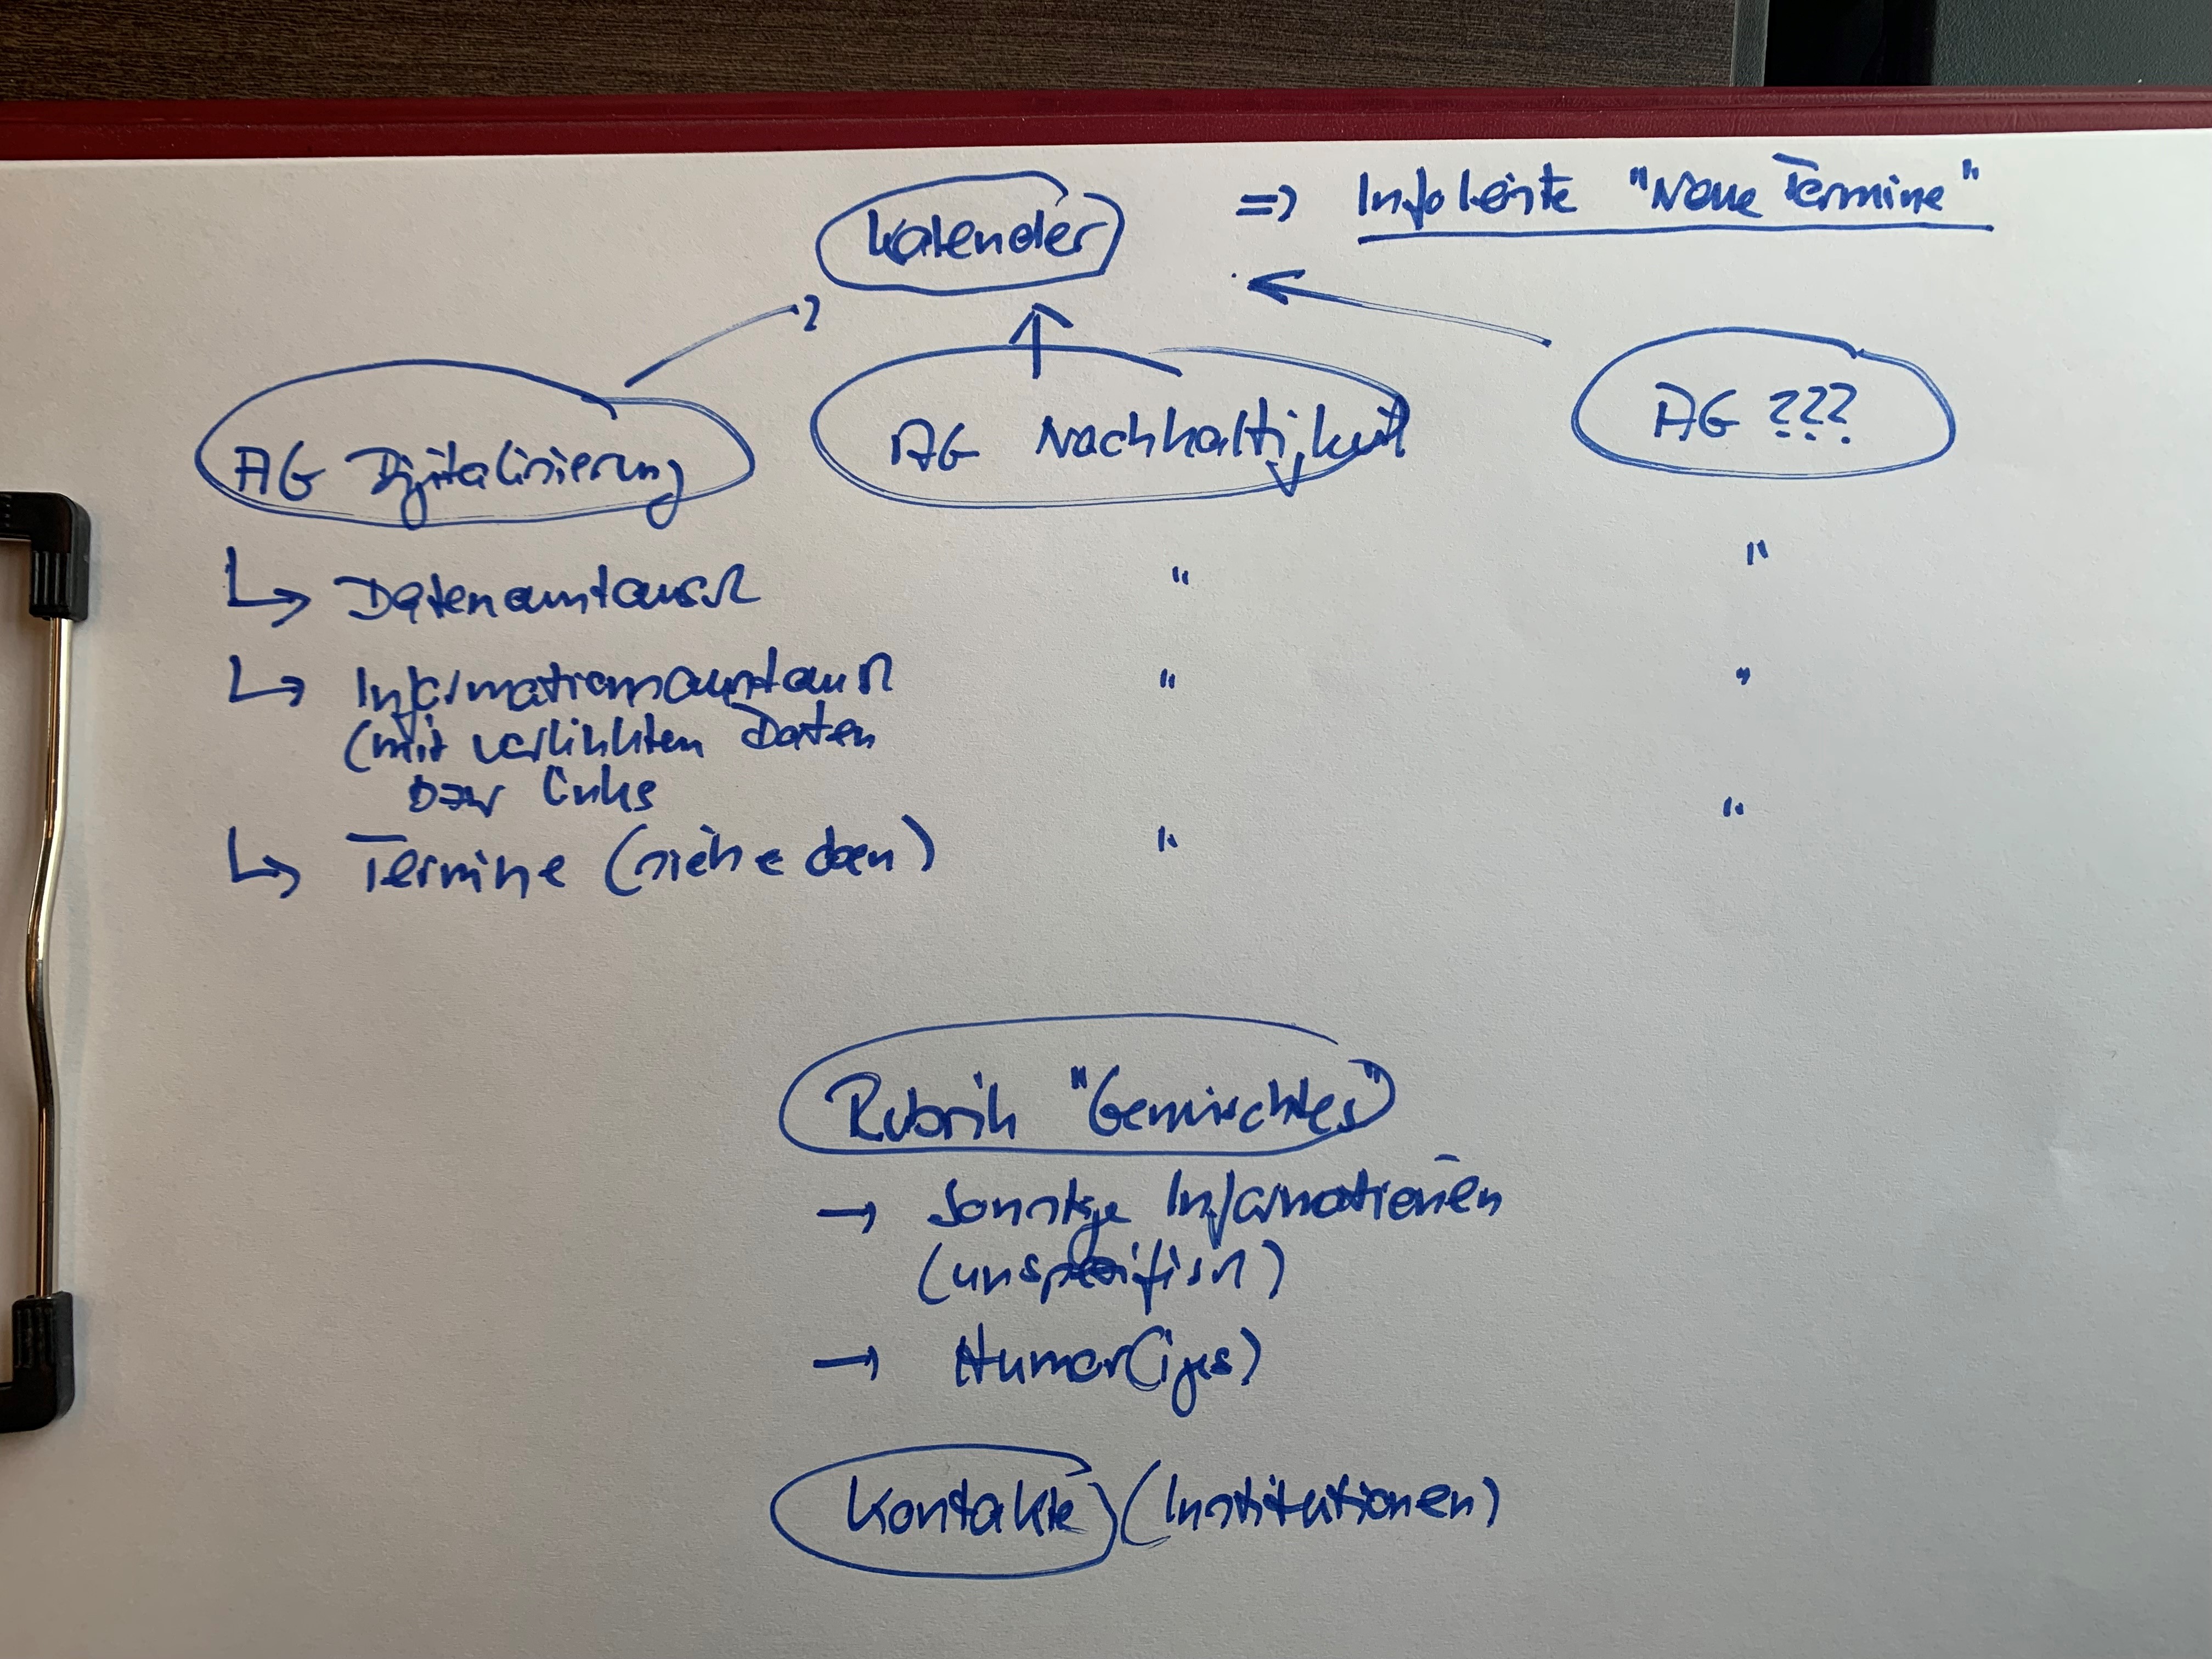 Kalender => Infoleiste "Neue Termine"
AG Digitalisierung AG Nachhaltigkeit AG ???
Datenaustausch " "
Informationsaustausch " "
(mit verlinkten Daten
bzw Links "
Termine (siehe oben) "
Rubrik "Gemischtes"
→ Sonstige Informationen
(unspezifisch)
→ Humor(iges)
Kontakte (Institutionen)